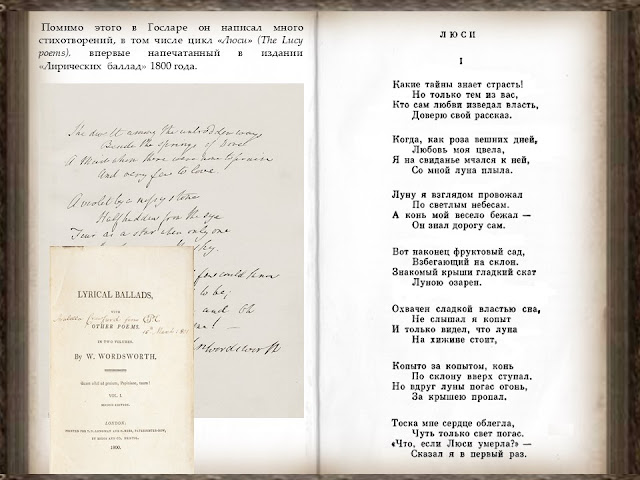 Помимо этого в Госларе он написал много
стихотворений, в том числе цикл «Люси» (The Lucy
poems), впервые напечатанный в издании
«Лирических баллад» 1800 года.
She dwelt among the untrodden ways
Beside the springs of Dove
A Maid whom there were none to praise
And very few to love.
A violet by a mossy stone
Half hidden from the eye
Fair as a star when only one
sky.
few could know
to be;
and Oh
LYRICAL BALLADS,
WITH
OTHER POEMS.
IN TWO VOLUMES.
By W. WORDSWORTH.
VOL. I.
SECOND EDITION.
LONDON:
1800.
ЛЮСИ
I
Какие тайны знает страсть!
Но только тем из вас,
Кто сам любви изведал власть,
Доверю свой рассказ.
Когда, как роза вешних дней,
Любовь моя цвела,
Я на свиданье мчался к ней,
Со мной луна плыла.
Луну я взглядом провожал
По светлым небесам.
А конь мой весело бежал —
Он знал дорогу сам.
Вот наконец фруктовый сад,
Взбегающий на склон.
Знакомый крыши гладкий скат
Луною озарен.
Охвачен сладкой властью сна,
Не слышал я копыт
И только видел, что луна
На хижине стоит,
Копыто за копытом, конь
По склону вверх ступал.
Но вдруг луны погас огонь,
За крышею пропал.
Тоска мне сердце облегла,
Чуть только свет погас.
«Что, если Люси умерла?» —
Сказал я в первый раз.